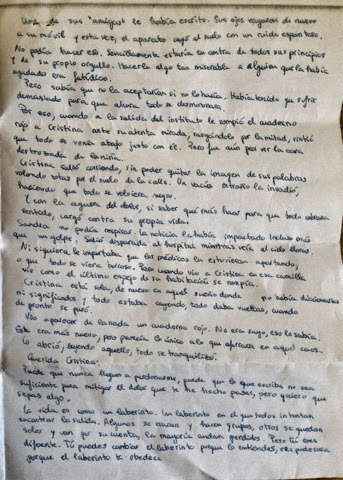 Una de sus "amigas" le había escrito. Sus ojos vagaron de nuevo
a su móvil y esta vez, el aparato cayó al suelo con un ruido espantoso.
No podía hacer eso. Sencillamente estaría en contra de todos sus principios
y de su propio orgullo. Hacerle algo tan miserable a alguien que la había
ayudado era fatídico.
Pero sabía que no la aceptarían si no lo hacía. Había tenido que sufrir
demasiado para que ahora todo se desmoronara.
Por eso, cuando a la salida del instituto le rompió el cuaderno
rojo a Cristina ante su atenta mirada, rasgándolo por la mitad, sintió
que todo se venía abajo junto con él. Pero fue aún peor ver la cara
destrozada de la niña.
Cristina salió corriendo, sin poder quitar la imagen de sus palabras
volando rotas por el suelo de la calle. Un vacío extraño la invadió,
haciendo que todo se volviera negro.
Y con la ceguera del dolor, sin saber qué más hacer para que todo cobrara
sentido, cargó contra su propia vida.
Sandra no podía respirar. La noticia la había impactado incluso más
que un golpe. Salió disparada al hospital mientras veía al cielo llorar.
Ni siquiera le importaba que los médicos la estuvieran apartando,
o que todo se viera borroso. Pero cuando vio a Cristina en esa camilla
vio como el último espejo de su habitación se rompía.
Cristina está sola, de nuevo en aquel sueño donde no había diccionarios
ni significados y todo estaba cayendo, todo daba vueltas, cuando
de pronto se paró.
Vio aparecer de la nada un cuaderno rojo. No era suyo, eso lo sabía.
Este era más nuevo, pero parecía lo único a lo que aferrarse en aquel caos.
Lo abrió, leyendo aquello, todo se tranquilizó.
Querida Cristina:
Puede que nunca llegues a perdonarme, puede que lo que escriba no sea
suficiente para mitigar el dolor que te he hecho pasar, pero quiero que
sepas algo.
La vida es como un laberinto. Un laberinto en el que todos intentan
encontrar la salida. Algunos se unen y hacen grupos, otros se quedan
solos y van por su cuenta, la mayoría andan perdidos. Pero tú eres
diferente. Tú puedes cambiar el laberinto porque lo entiendes, eres poderosa
porque el laberinto te obedece